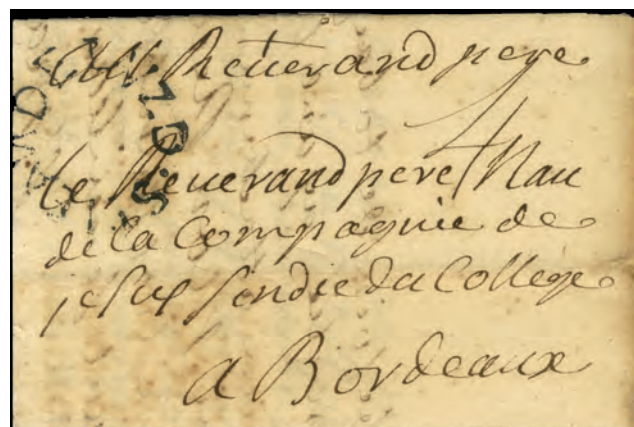 Au Reuerand pere
le Reuerand pere Nau
de la Compagnie de
jesus sindic du College
a Bordeaux